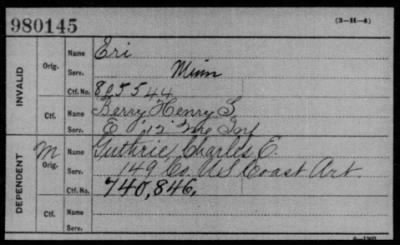 980145
(3-H-4)
INVALID
Orig.
Name Eri
Serv. Minn
Ctf. No. 805544
Ctf.
Name Berry, Henry S.
Serv. E, 12" Me Inf
DEPENDENT
M
Orig.
Name Guthrie, Charles E.
Serv. 149 Co. US Coast Art.
Ctf. No. 740,846.
Ctf.
Name
Serv.